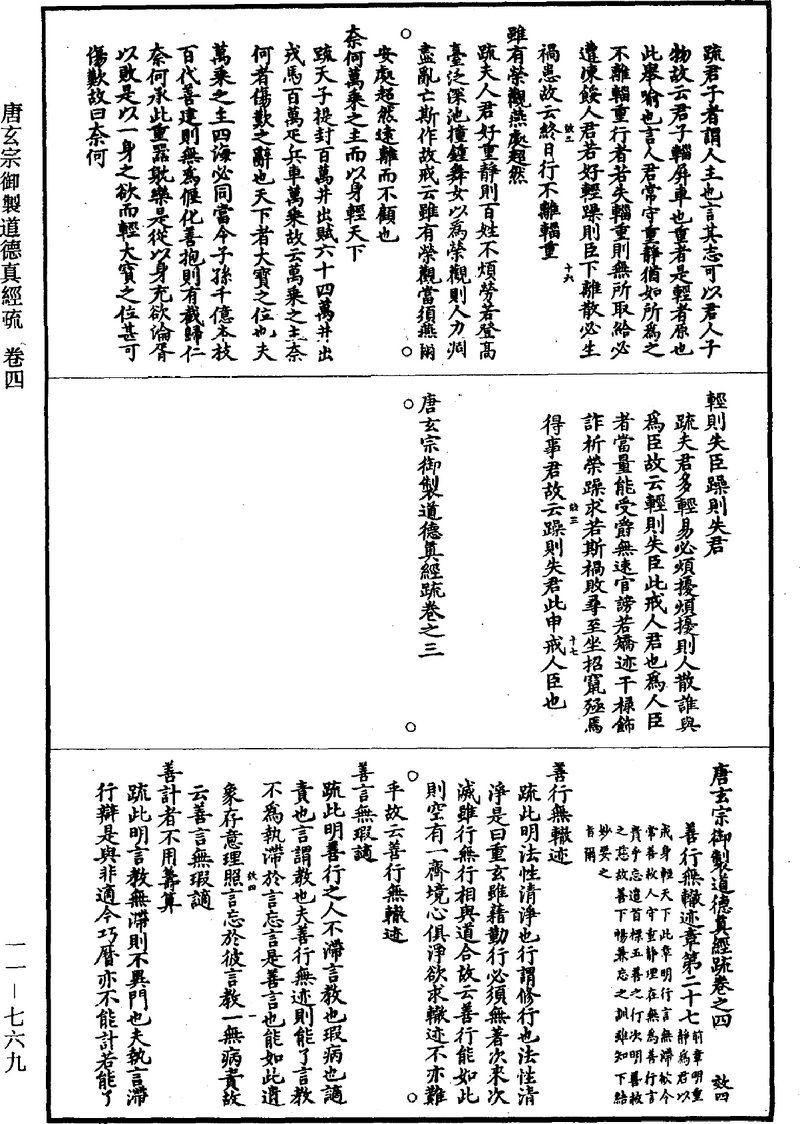 疏君子者謂人主也言其志可以君人子
物故云君子輜屏車也重者是輕者原也
此舉喻也言人君常守重靜猶如所為之
不離輜重行者若失輜重則無所取給必
遭凍餒人君若好輕躁則臣下離散必生
禍患故云終日行不離輜重
效三
十六
雖有榮觀燕處超然
疏夫人君好重靜則百姓不煩勞若登高
臺泛深池撞鐘舞女以為榮觀則人力凋
盡亂亡斯作故戒云雖有榮觀當須燕爾
安處超然遠離而不顧也
奈何萬乘之主而以身輕天下
疏天子提封百萬井出賦六十四萬井出
戎馬百萬疋兵車萬乘故云萬乘之主奈
何者傷歎之辭也天下者大寶之位也夫
萬乘之主四海必同當令子孫千億本枝
百代善建則無為偃化善抱則有截歸仁
奈何承此重器耽樂是從以身充欲淪胥
以敗是以一身之欲而輕大寶之位甚可
傷歎故曰奈何
輕則失臣躁則失君
疏夫君多輕易必煩擾煩擾則人散誰與
為臣故云輕則失臣此戒人君也為人臣
者當量能受爵無速官謗若矯迹干祿飾
詐祈榮躁求若斯禍敗尋至坐招竄殛焉
得事君故云躁則失君此申戒人臣也
效三
十七
唐玄宗御製道德真經疏卷之三
唐玄宗御製道德真經疏卷之四
效四
善行無轍迹章第二十七
前章明重
靜為君以
戒身輕天下此章明行言無滯於今
常善救人守重靜理在無為善行言
責乎忘遣首標五善之行次明善救
之慈故善下暢兼忘之訓雖知下結
妙要之
旨爾
善行無轍迹
疏此明法性清淨也行謂修行也法性清
淨是曰重玄雖藉勤行必須無著次來次
滅雖行無行相與道合故云善行能如此
則空有一齊境心俱淨欲求轍迹不亦難
乎故云善行無轍迹
善言無瑕謫
疏此明善行之人不滯言教也瑕病也謫
責也言謂教也夫善行無迹則能了言教
不為執滯於言忘言是善言也能如此遺
象存意理照言忘於彼言教一無病責故
云善言無瑕謫
效四
一
善計者不用籌算
疏此明言教無滯則不異門也夫執言滯
行辯是與非適令巧曆亦不能計若能了
唐玄宗御製道德真經疏 卷四
一一—七六九